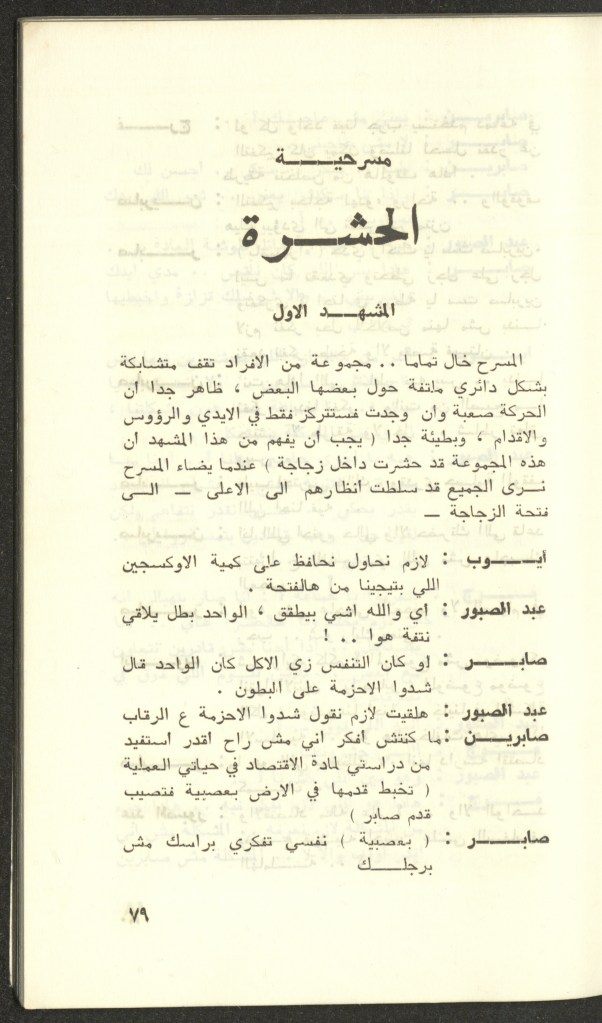 مسرحيــــة
الحشــرة
المشهــد الاول
المسرح خال تماما .. مجموعة من الافراد تقف متشابكة
بشكل دائري ملتفة حول بعضها البعض ، ظاهر جدا ان
الحركة صعبة وان وجدت فستتركز فقط في الايدي والرؤوس
والاقدام ، وبطيئة جدا ( يجب ان يفهم من هذا المشهد ان
هذه المجموعة قد حشرت داخل زجاجة ) عندما يضاء المسرح
نــرى الجميع قد سلطت انظارهم الى الاعلى ـــ الــى
فتحة الزجاجة ـــ
أيـــــوب : لازم نحاول نحافظ على كمية الاوكسجين
اللي بتيجينا من هالفتحة .
عبد الصبور : اي والله اشي بيطقق ، الواحد بطل يلاقي
نتفة هوا .. !
صابـــــر : لو كان التنفس زي الاكل كان الواحد قال
شدوا الاحزمة على البطون .
عبد الصبور : هلقيت لازم نقول شدوا الاحزمة ع الرقاب
صابريـــن : ما كنتش افكر اني مش راح اقدر استفيد
من دراستي لمادة الاقتصاد في حياتي العملية
( تخبط قدمها في الارض بعصبية فتصيب
قدم صابر )
صابـــــر : ( بعصبية ) نفسي تفكري براسك مش
برجلـــك
٧٩